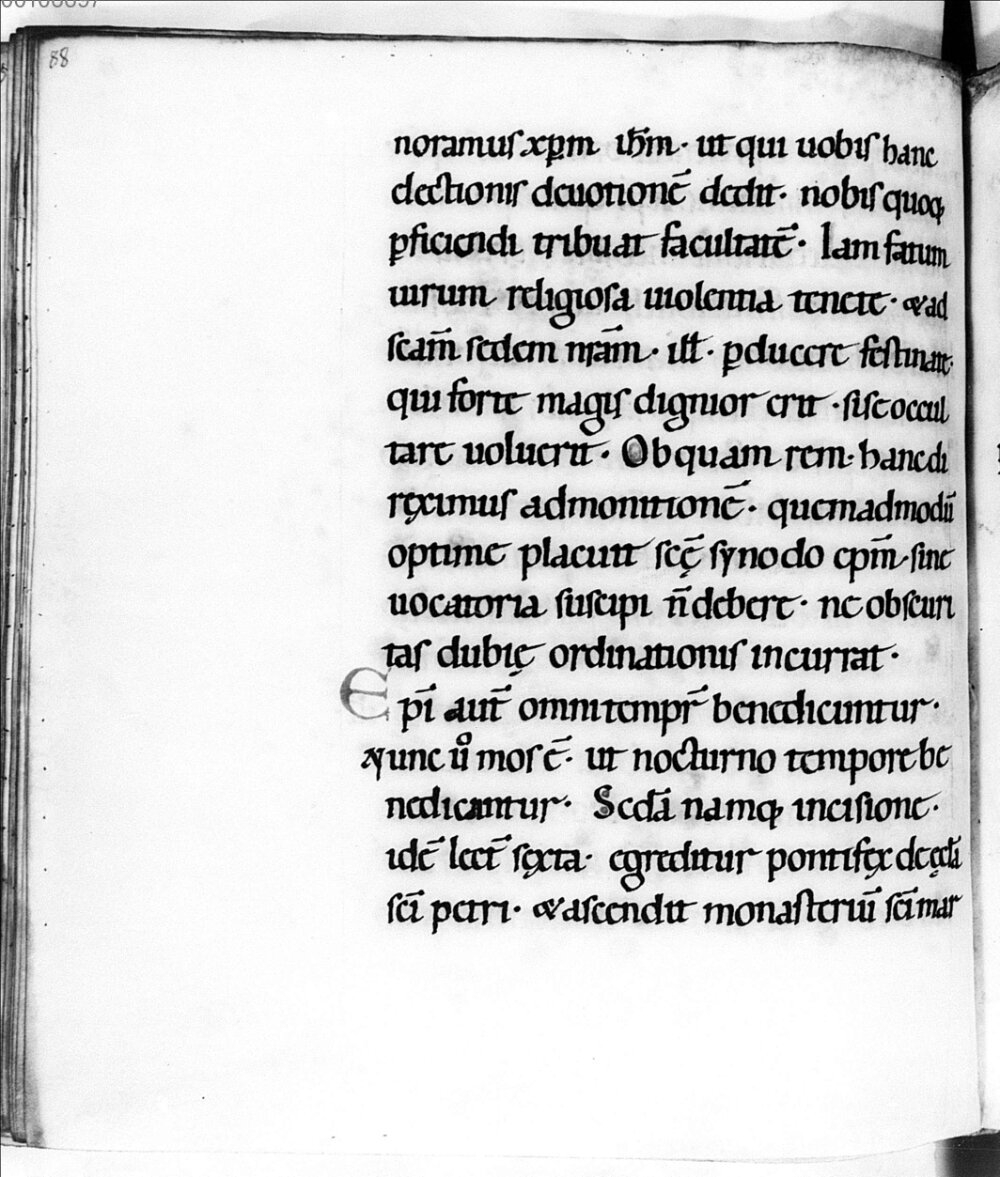 88
noramus xp̄m ih̄m· ut qui uobis hanc
electionis deuotionē dedit· nobis quoq;
ꝑficiendi tribuat facultatē· Iam fatum
uirum religiosa uiolentia tenete· & ad
sc̄am sedem nr̄am· ill̄· ꝑducere festinate·
qui forte magis dignior erit· si se occul
tare uoluerit· Ob quam rem· hanc di
ręximus admonitionē· quemadmodū
optime placuit sc̄ę synodo ep̄m· sine
uocatoria suscipi n̄ debere· ne obscuri
tas dubię ordinationis incurrat·
Ep̄i aut̄ omni tempr̄ benedicuntur·
Nunc ů mos ē· ut nocturno tempore be
nedicantur· Sedā namq; incisione·
idē lect̄ sęxta· egreditur pontifęx de ęcclā
sc̄i petri· & ascendit monasteriū sc̄i mar